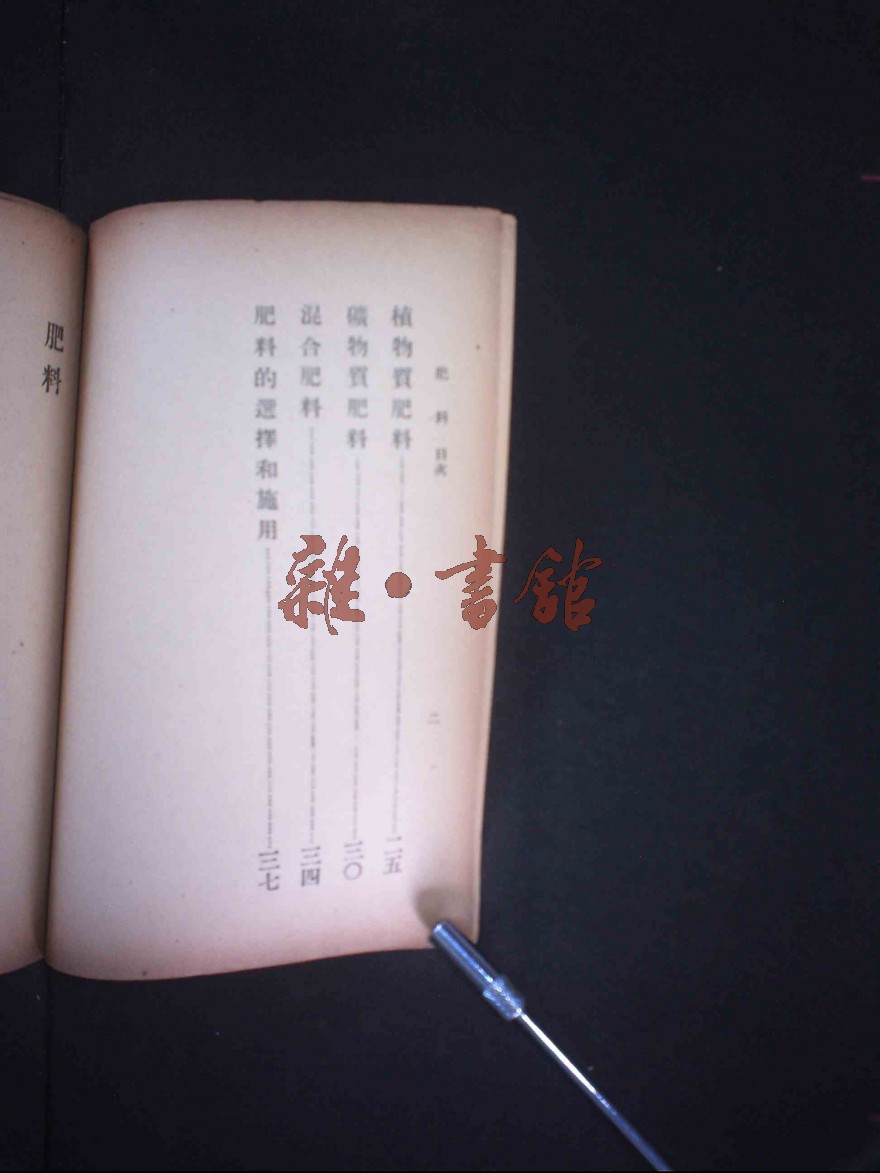 肥料 目次
二
植物質肥料 二五
礦物質肥料 三〇
混合肥料 三四
肥料的選擇和施用 三七
肥料
雜·書館